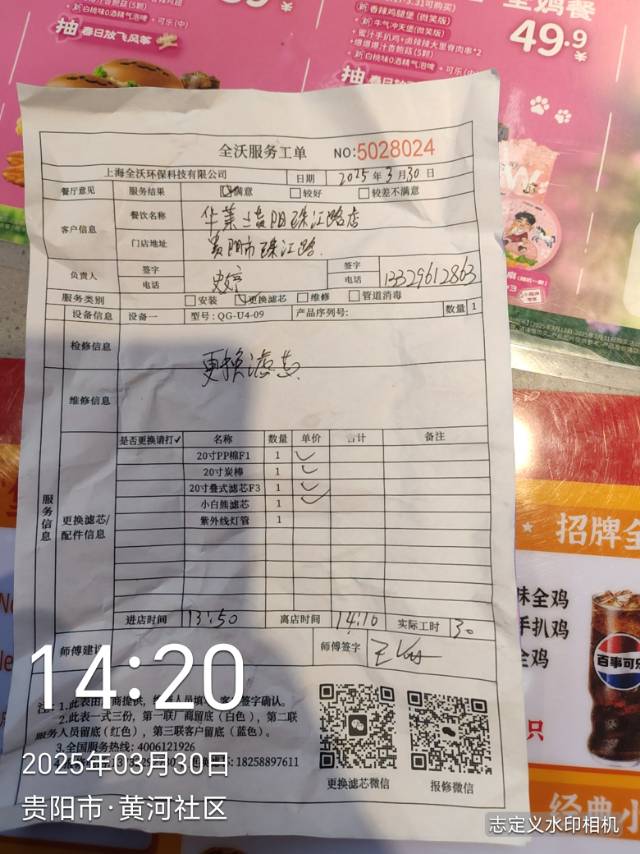 新 香辣鸡腿堡(微笑版)
新 牛气冲天堡(微笑版)
新 白桃味0酒精气泡啤
抽 春日放飞风筝
49.9
全鸡餐
抽
全沃服务工单 NO:5028024
上海全沃环保科技有限公司 日期 2025年3月30日
餐厅意见 服务结果 满意 较好 较差不满意
客户信息 餐饮名称 华莱士贵阳珠江路店
门店地址 贵阳市珠江路
负责人 签字 签字
电话 电话 13329612863
服务类别 安装 更换滤芯 维修 管道消毒
设备信息 设备一 型号:QG-U4-09 产品序列号: 数量 1
检修信息
更换滤芯
维修信息
服务信息
更换滤芯/配件信息
是否更换请打✓ 名称 数量 单价 合计 备注
20寸PP棉F1 1 ✓
20寸炭棒 1 ✓
20寸叠式滤芯F3 1 ✓
小白熊滤芯 1 ✓
紫外线灯管 1
进店时间 13:50 离店时间 14:10 实际工时 30
师傅建议 师傅签字
注:1.此表由厂商提供,客户签字确认。
2.此表一式三份,第一联厂商留底(白色)、第二联
服务人员留底(红色)、第三联客户留底(蓝色)。
3.全国服务热线:4006121926
18258897611
更换滤芯微信 报修微信
14:20
2025年03月30日
贵阳市·黄河社区
招牌全
味全鸡
手扒鸡
全鸡
只
百事可乐
经典小
志定义水印相机